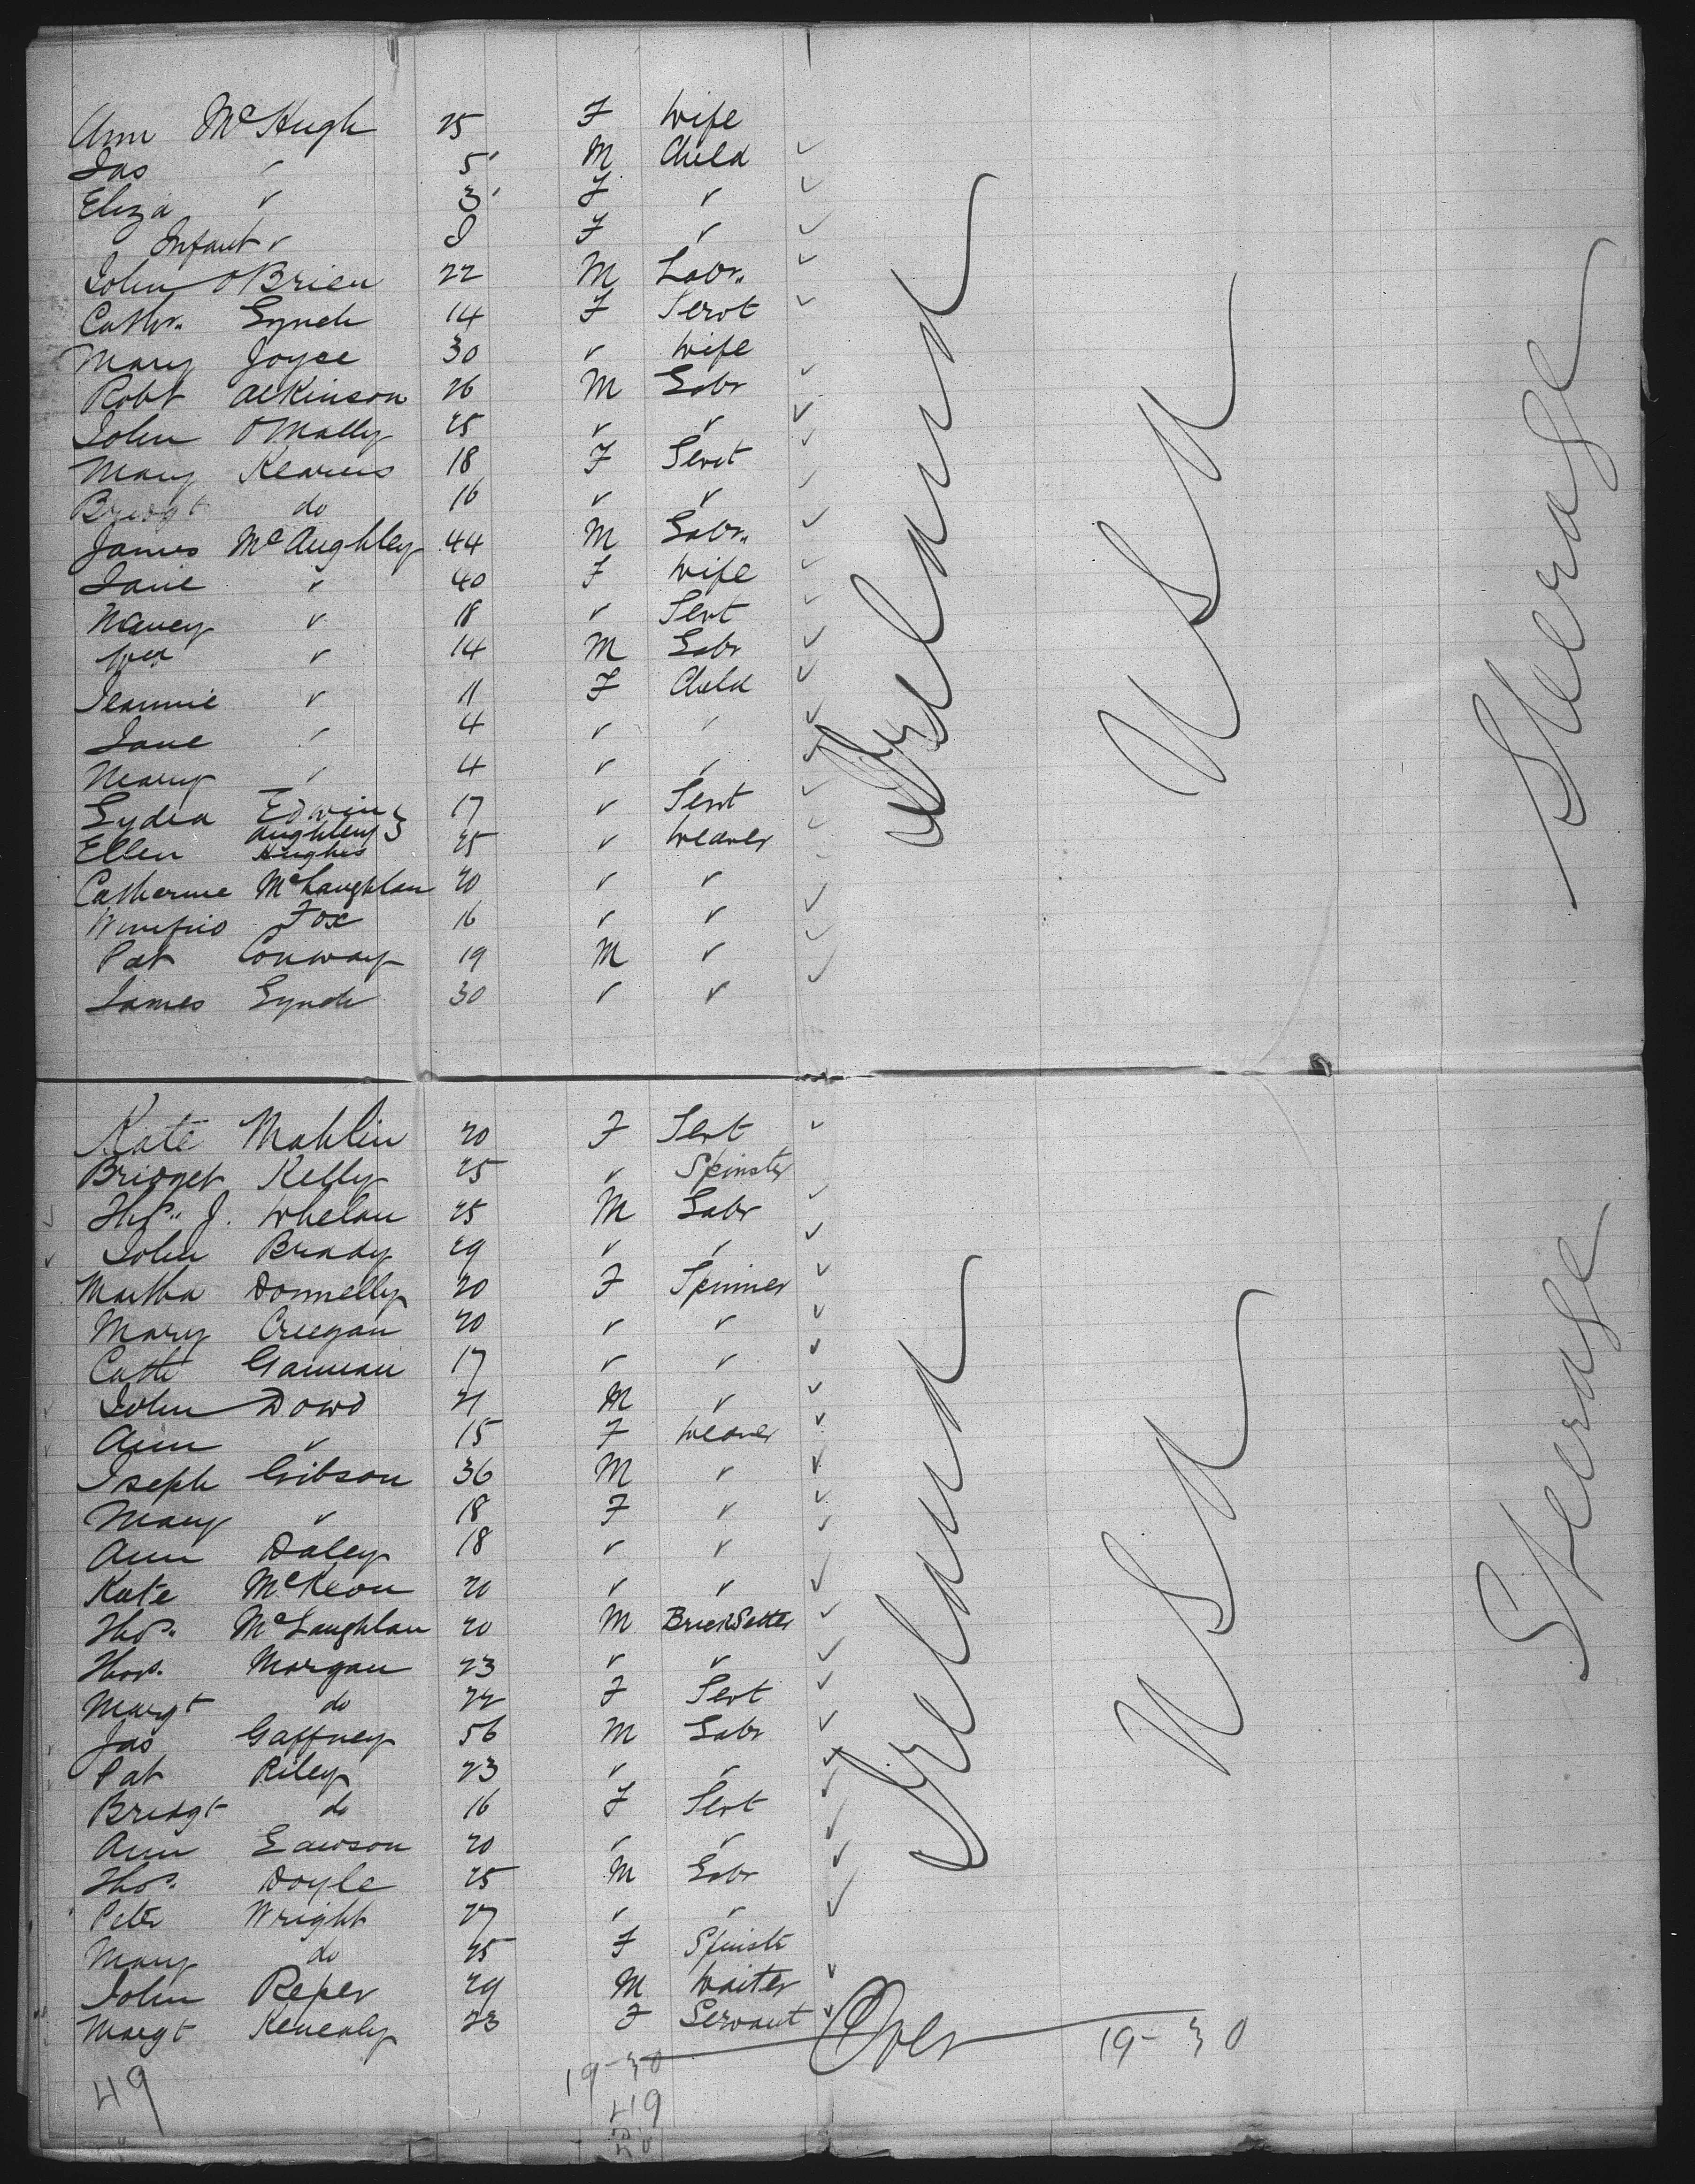 Ann McHugh 25 F Wife
Jas " 5 M Child
Eliza " 3 F "
Infant " F "
John OBrien 22 M Labr.
Cathr. Lynch 14 F Servt
Mary Joyce 30 " Wife
Robt Atkinson 26 M Labr
John OMally 25 " "
Mary Kearns 18 F Servt
Bridgt do 16 " "
James McAughley 44 M Labr.
Jane " 40 F Wife
Nancy " 18 " Servt
" 14 M Labr
Jeannie " 11 F Child
Jane " 4 " "
Mary " 4 " "
Lydia Edwin 17 " Servt
Aughley
Ellen Hughes 25 " Weaver
Catherine McLaughlan 20 " "
Winifrid Fox 16 " "
Pat Conway 19 M "
James Lynch 30 " "
Ireland
USA
Steerage
Kate Mahlin 20 F Servt
Bridget Kelly 25 " Spinster
Thos. J. Whelan 25 M Labr
John Brady 29 " "
Martha Donnelly 20 F Spinner
Mary Creegan 20 " "
Cath 17 " "
John Dowd 21 M "
Ann " 15 F Weaver
Joseph Gibson 36 M "
Mary " 18 F "
Ann Daley 18 " "
Kate McKeon 20 " "
Thos. McLaughlan 20 M BrickSetter
Thos. Morgan 23 " "
Margt do 22 F Servt
Jas Gaffney 56 M Labr
Pat Riley 23 " "
Bridgt do 16 F Servt
Ann Lawson 20 " "
Thos. Doyle 25 M Labr
Peter Wright 27 " "
Mary do 25 F Spinstr
John Reper 29 M Waiter
Margt Kenealy 23 F Servant
Ireland
USA
Steerage
Over
19-30
19-30
49
49